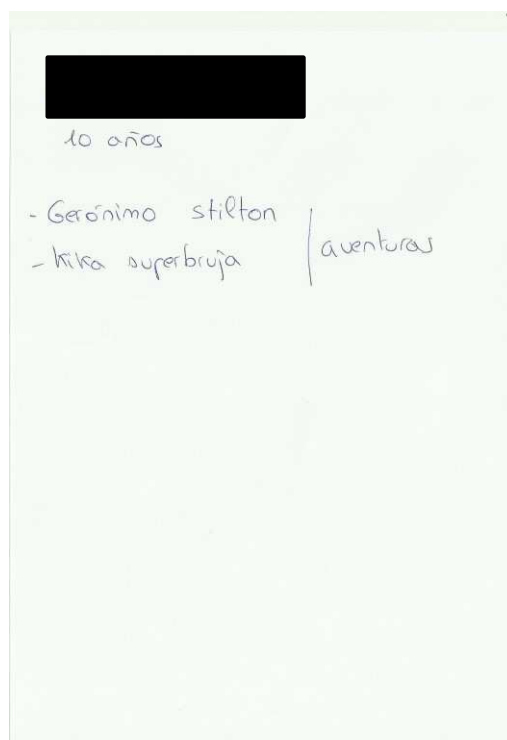 10 años
- Gerónimo stilton
- kika superbruja
aventuras